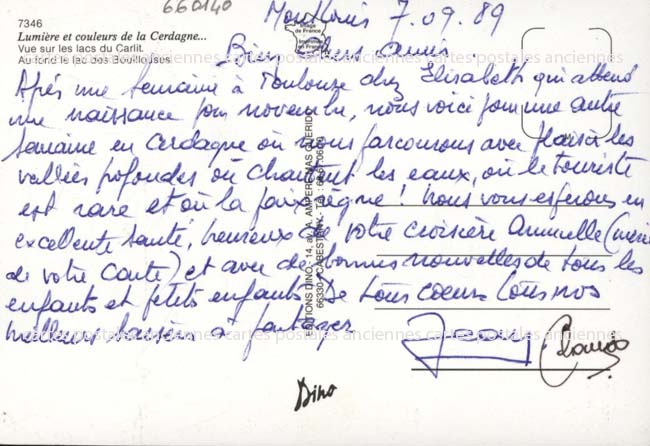 660140
Montlouis 7.09.89
7346
Lumière et couleurs de la Cerdagne...
Vue sur les lacs du Carlit.
Au fond le lac des Bouillouses
Image de France
Bien chers amis
Après une semaine à Toulouse chez Elisabeth qui attend
une naissance pour novembre, nous voici pour une autre
semaine en Cerdagne où nous parcourons avec plaisir les
vallées profondes où chantent les eaux, où le touriste
est rare et où la paix règne ! Nous vous espérons en
excellente santé, heureux de votre croisière annuelle (merci
de votre carte) et avec de bonnes nouvelles de tous les
enfants et petits enfants De tout coeur tous nos
meilleurs baisers à partager
EDITIONS DINO, 14, av. A. AMPERE MAS GUERIDO
66330 CABESTANY
Dino
cartes postales anciennes cartes postales anciennes cartes postales anciennes